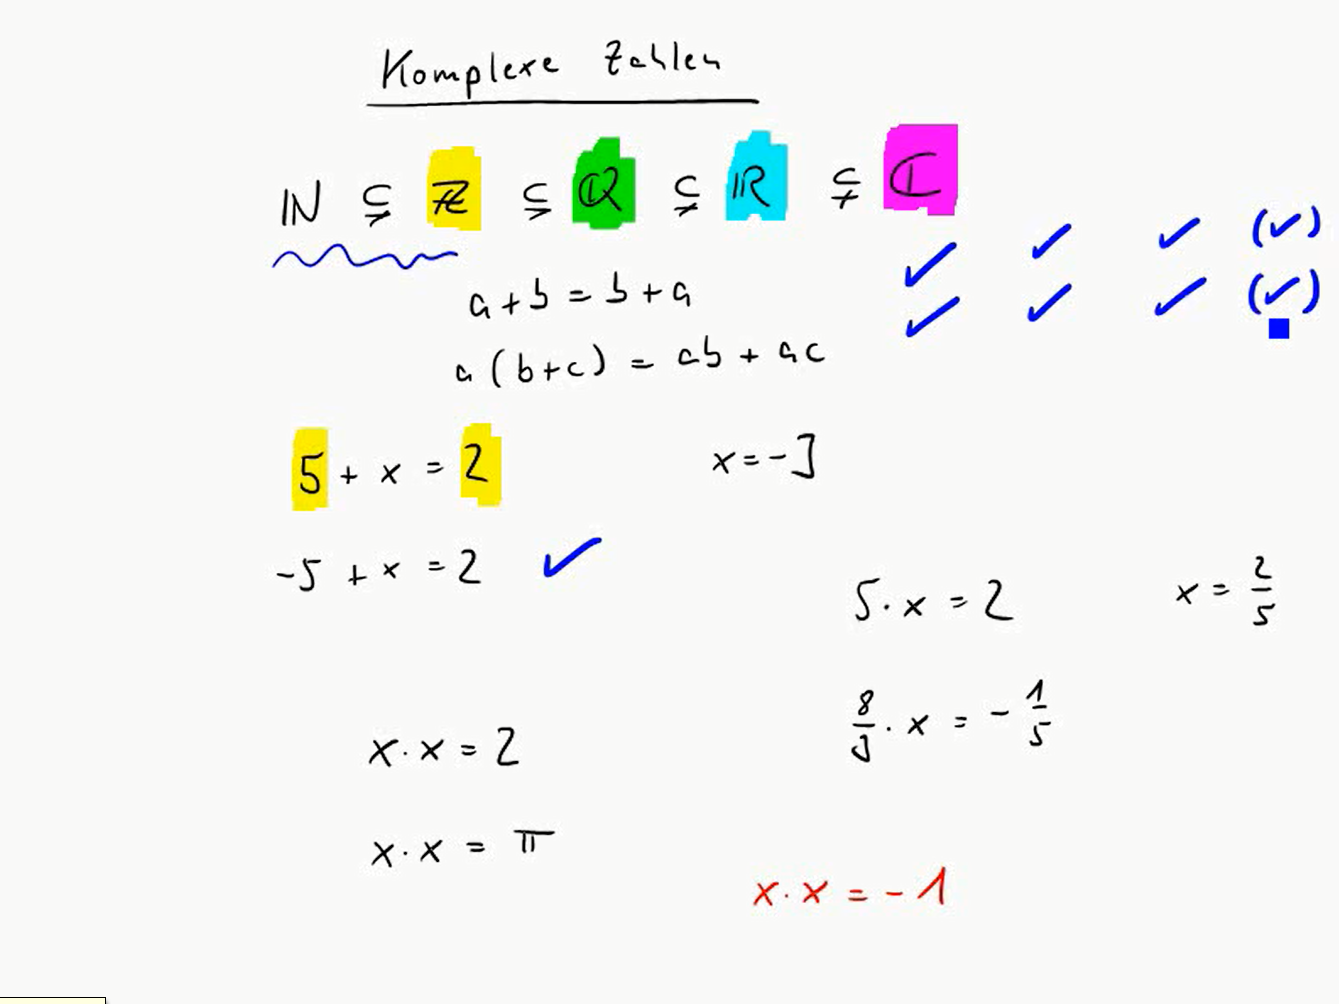 Komplexe Zahlen
ℕ ⊊ ℤ ⊊ ℚ ⊊ ℝ ⊊ ℂ
✓ ✓ ✓ (✓)
a + b = b + a
✓ ✓ ✓ (✓)
a (b+c) = ab + ac
5 + x = 2 x = -3
-5 + x = 2 ✓
5 · x = 2 x = 2/5
8/3 · x = - 1/5
x · x = 2
x · x = π
x · x = - 1